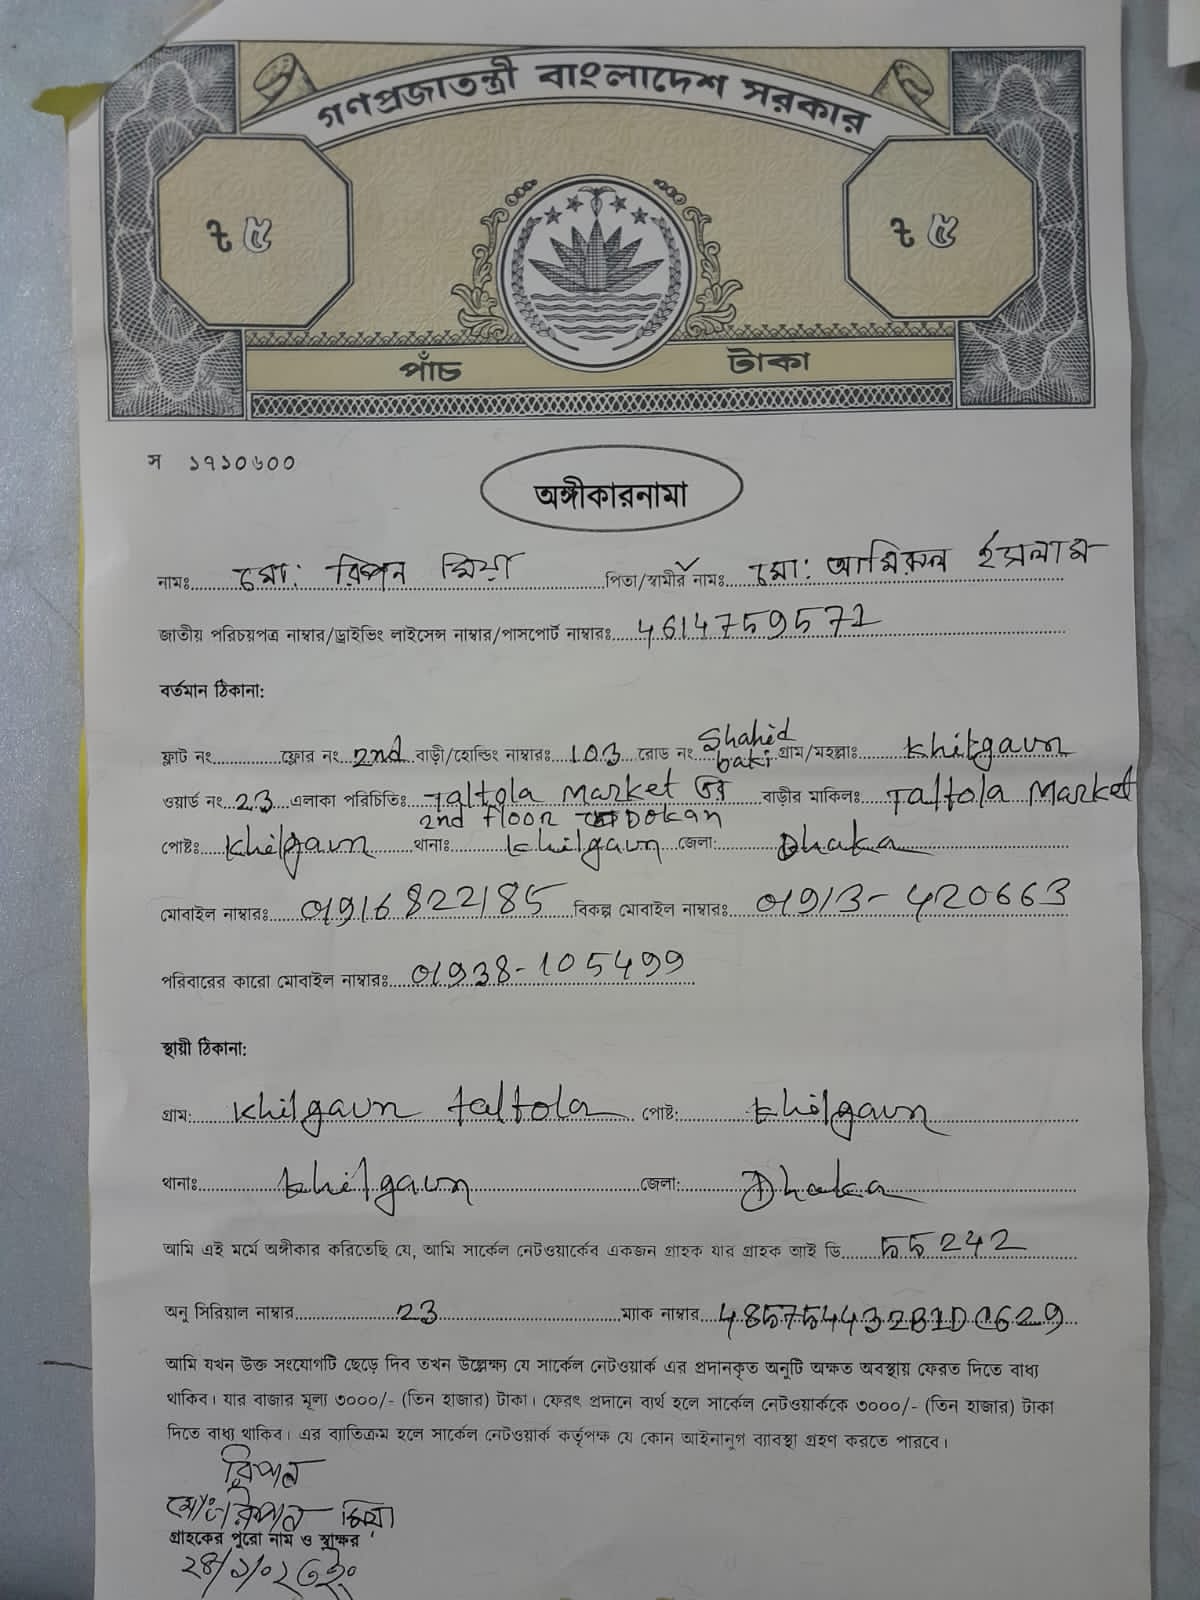 গণপ্রজাতন্ত্রী বাংলাদেশ সরকার
ট ৫ ট ৫
পাঁচ টাকা
স ১৭১০৬০০
অঙ্গীকারনামা
নামঃ মো: রিপন মিয়া পিতা/স্বামীর নামঃ মো: আমিরুল ইসলাম
জাতীয় পরিচয়পত্র নাম্বার/ড্রাইভিং লাইসেন্স নাম্বার/পাসপোর্ট নাম্বারঃ 4614759571
বর্তমান ঠিকানা:
ফ্লাট নং ফ্লোর নং 2nd বাড়ী/হোল্ডিং নাম্বারঃ 103 রোড নং Shahid baki গ্রাম/মহল্লাঃ Khilgaun
ওয়ার্ড নং 23 এলাকা পরিচিতিঃ Taltola Market এর বাড়ীর মাকিলঃ Taltola Market
2nd floor Dokan
পোষ্টঃ Khilgaun থানাঃ Khilgaun জেলা: Dhaka
মোবাইল নাম্বারঃ 01916822185 বিকল্প মোবাইল নাম্বারঃ 01913-420663
পরিবারের কারো মোবাইল নাম্বারঃ 01938-105499
স্থায়ী ঠিকানা:
গ্রাম: Khilgaun taltola পোষ্ট: Khilgaun
থানাঃ Khilgaun জেলা: Dhaka
আমি এই মর্মে অঙ্গীকার করিতেছি যে, আমি সার্কেল নেটওয়ার্কের একজন গ্রাহক যার গ্রাহক আই ডি 55242
অনু সিরিয়াল নাম্বার 23 ম্যাক নাম্বার 485754432B1DC629
আমি যখন উক্ত সংযোগটি ছেড়ে দিব তখন উল্লেক্ষ্য যে সার্কেল নেটওয়ার্ক এর প্রদানকৃত অনুটি অক্ষত অবস্থায় ফেরত দিতে বাধ্য
থাকিব। যার বাজার মূল্য ৩০০০/- (তিন হাজার) টাকা। ফেরৎ প্রদানে ব্যর্থ হলে সার্কেল নেটওয়ার্ককে ৩০০০/- (তিন হাজার) টাকা
দিতে বাধ্য থাকিব। এর ব্যাতিক্রম হলে সার্কেল নেটওয়ার্ক কর্তৃপক্ষ যে কোন আইনানুগ ব্যাবস্থা গ্রহণ করতে পারবে।
রিপন
মোঃ রিপন মিয়া
গ্রাহকের পুরো নাম ও স্বাক্ষর